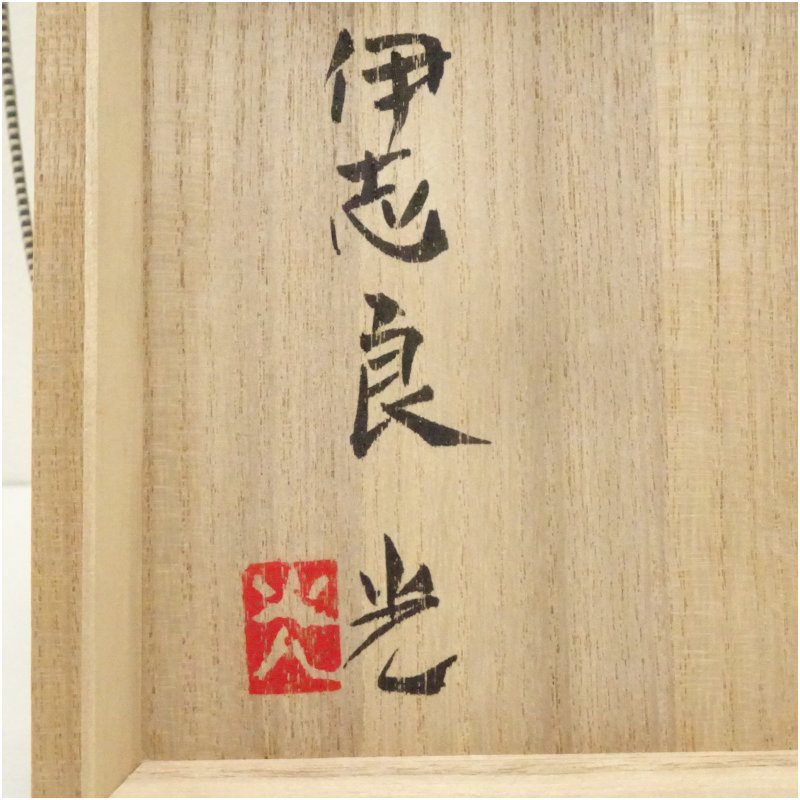 伊志良光
光